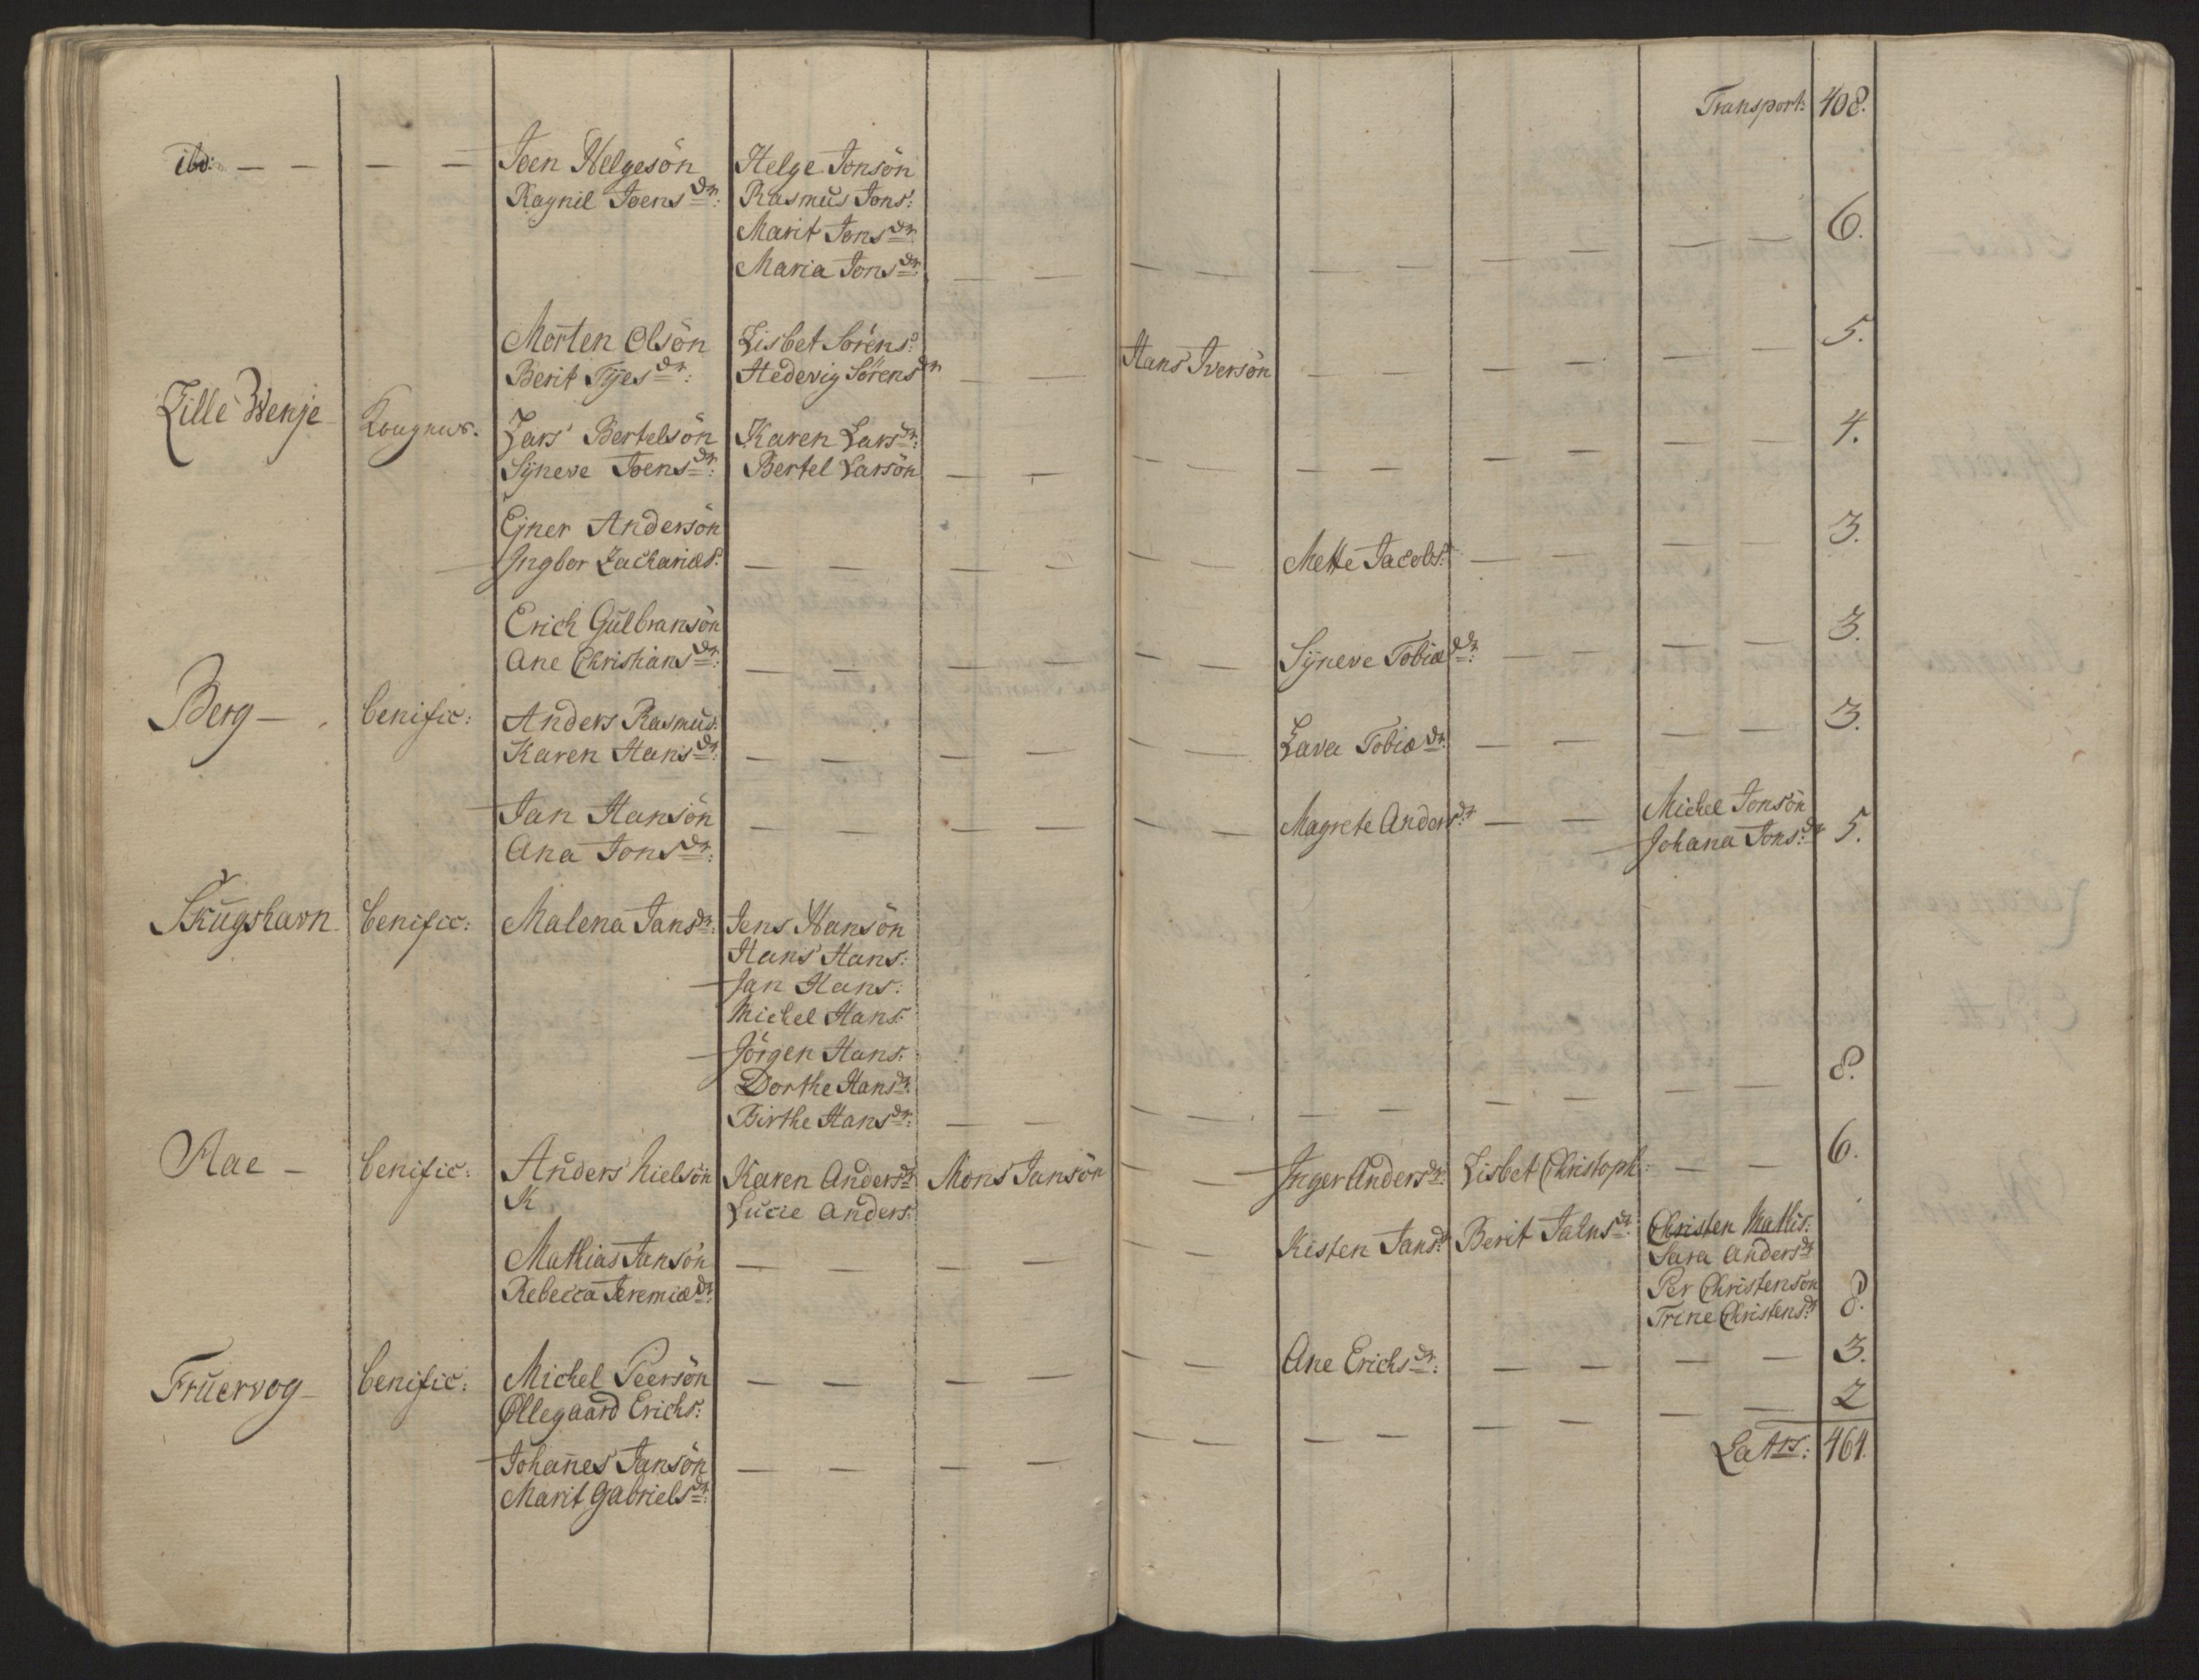 Transport: 408.
ibd: — — — — Joen Helgesön Helge Jonsön
Ragnil Joens dr: Rasmus Jons:
Marit Jons dr:
Maria Jons dr: — — — — — — — — — — 6.
Morten Olsön Lisbet Sörens:
Berit Tÿes dr: Hedevig Sörens dr — — Hans Iversön — — — — — — 5.
Lille Wenje Lars Bertelsön Karen Lars dr:
Sÿneve Joens dr: Bertel Larsön — — — — — — — — — — 4.
Ejner Andersön
Ingbor Zacharias: — — — — — — Mette Jacobs: — — — — 3.
Erich Gülbransön
Ane Christians dr: — — — — — — Sÿneve Tobiæ dr: — — — — 3.
Berg — benific: Anders Rasmus:
Karen Hans dr: — — — — — — Lava Tobiæ dr: — — — — 3.
Jan Hansön — — — — — — Magrete Anders dr — — Michel Jonsön
Ana Jons dr: Johana Jons dr 5.
Skugshavn benific: Malena Jans dr: Jens Hansön
Hans Hans:
Jan Hans:
Michel Hans:
Jörgen Hans:
Dorthe Hans dr:
Birthe Hans dr: — — — — — — — — — — 8.
Aae — benific: Anders Nielsön Karen Anders dr Mons Jansön — — Inger Anders dr: Lisbet Christoph: — — 6.
K Lucie Anders:
Mathias Jansön — — — — — — Kisten Jans dr Berit Jalns dr: Christen Mathis:
Rebecca Jeremiæ dr: Sara Anders dr
Per Christensön
Trine Christens dr 8.
Fruervog benific: Michel Peersön — — — — — — Ane Erichs dr: — — — — 3.
Øllegaard Erichs:
Johanes Jansön — — — — — — — — — — — — 2
Marit Gabriels dr:
Lats: 464.